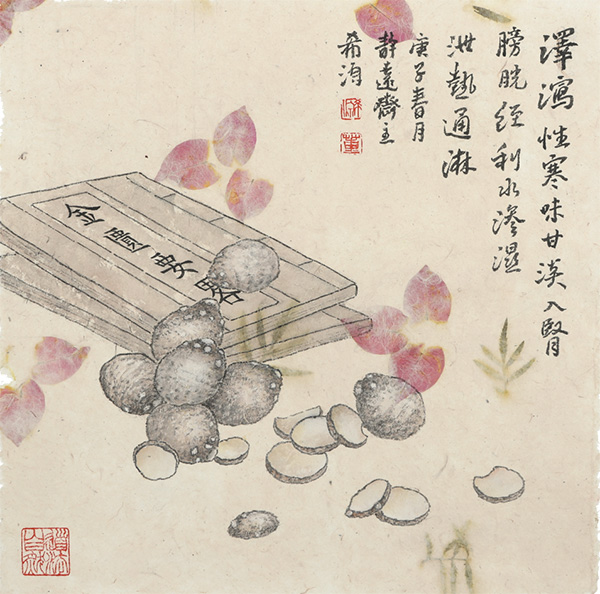 澤瀉性寒味甘淡入腎
膀胱經利水滲濕
泄熱通淋
庚子春月
靜遠齋主
希
董
金匱要畧
道法自然